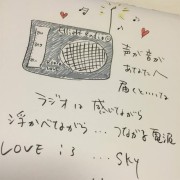 声が音が
あなたへ
届くといいな
ラジオは 感じてながら
浮かべてながら … つながる電波
LOVE : 3 … sky